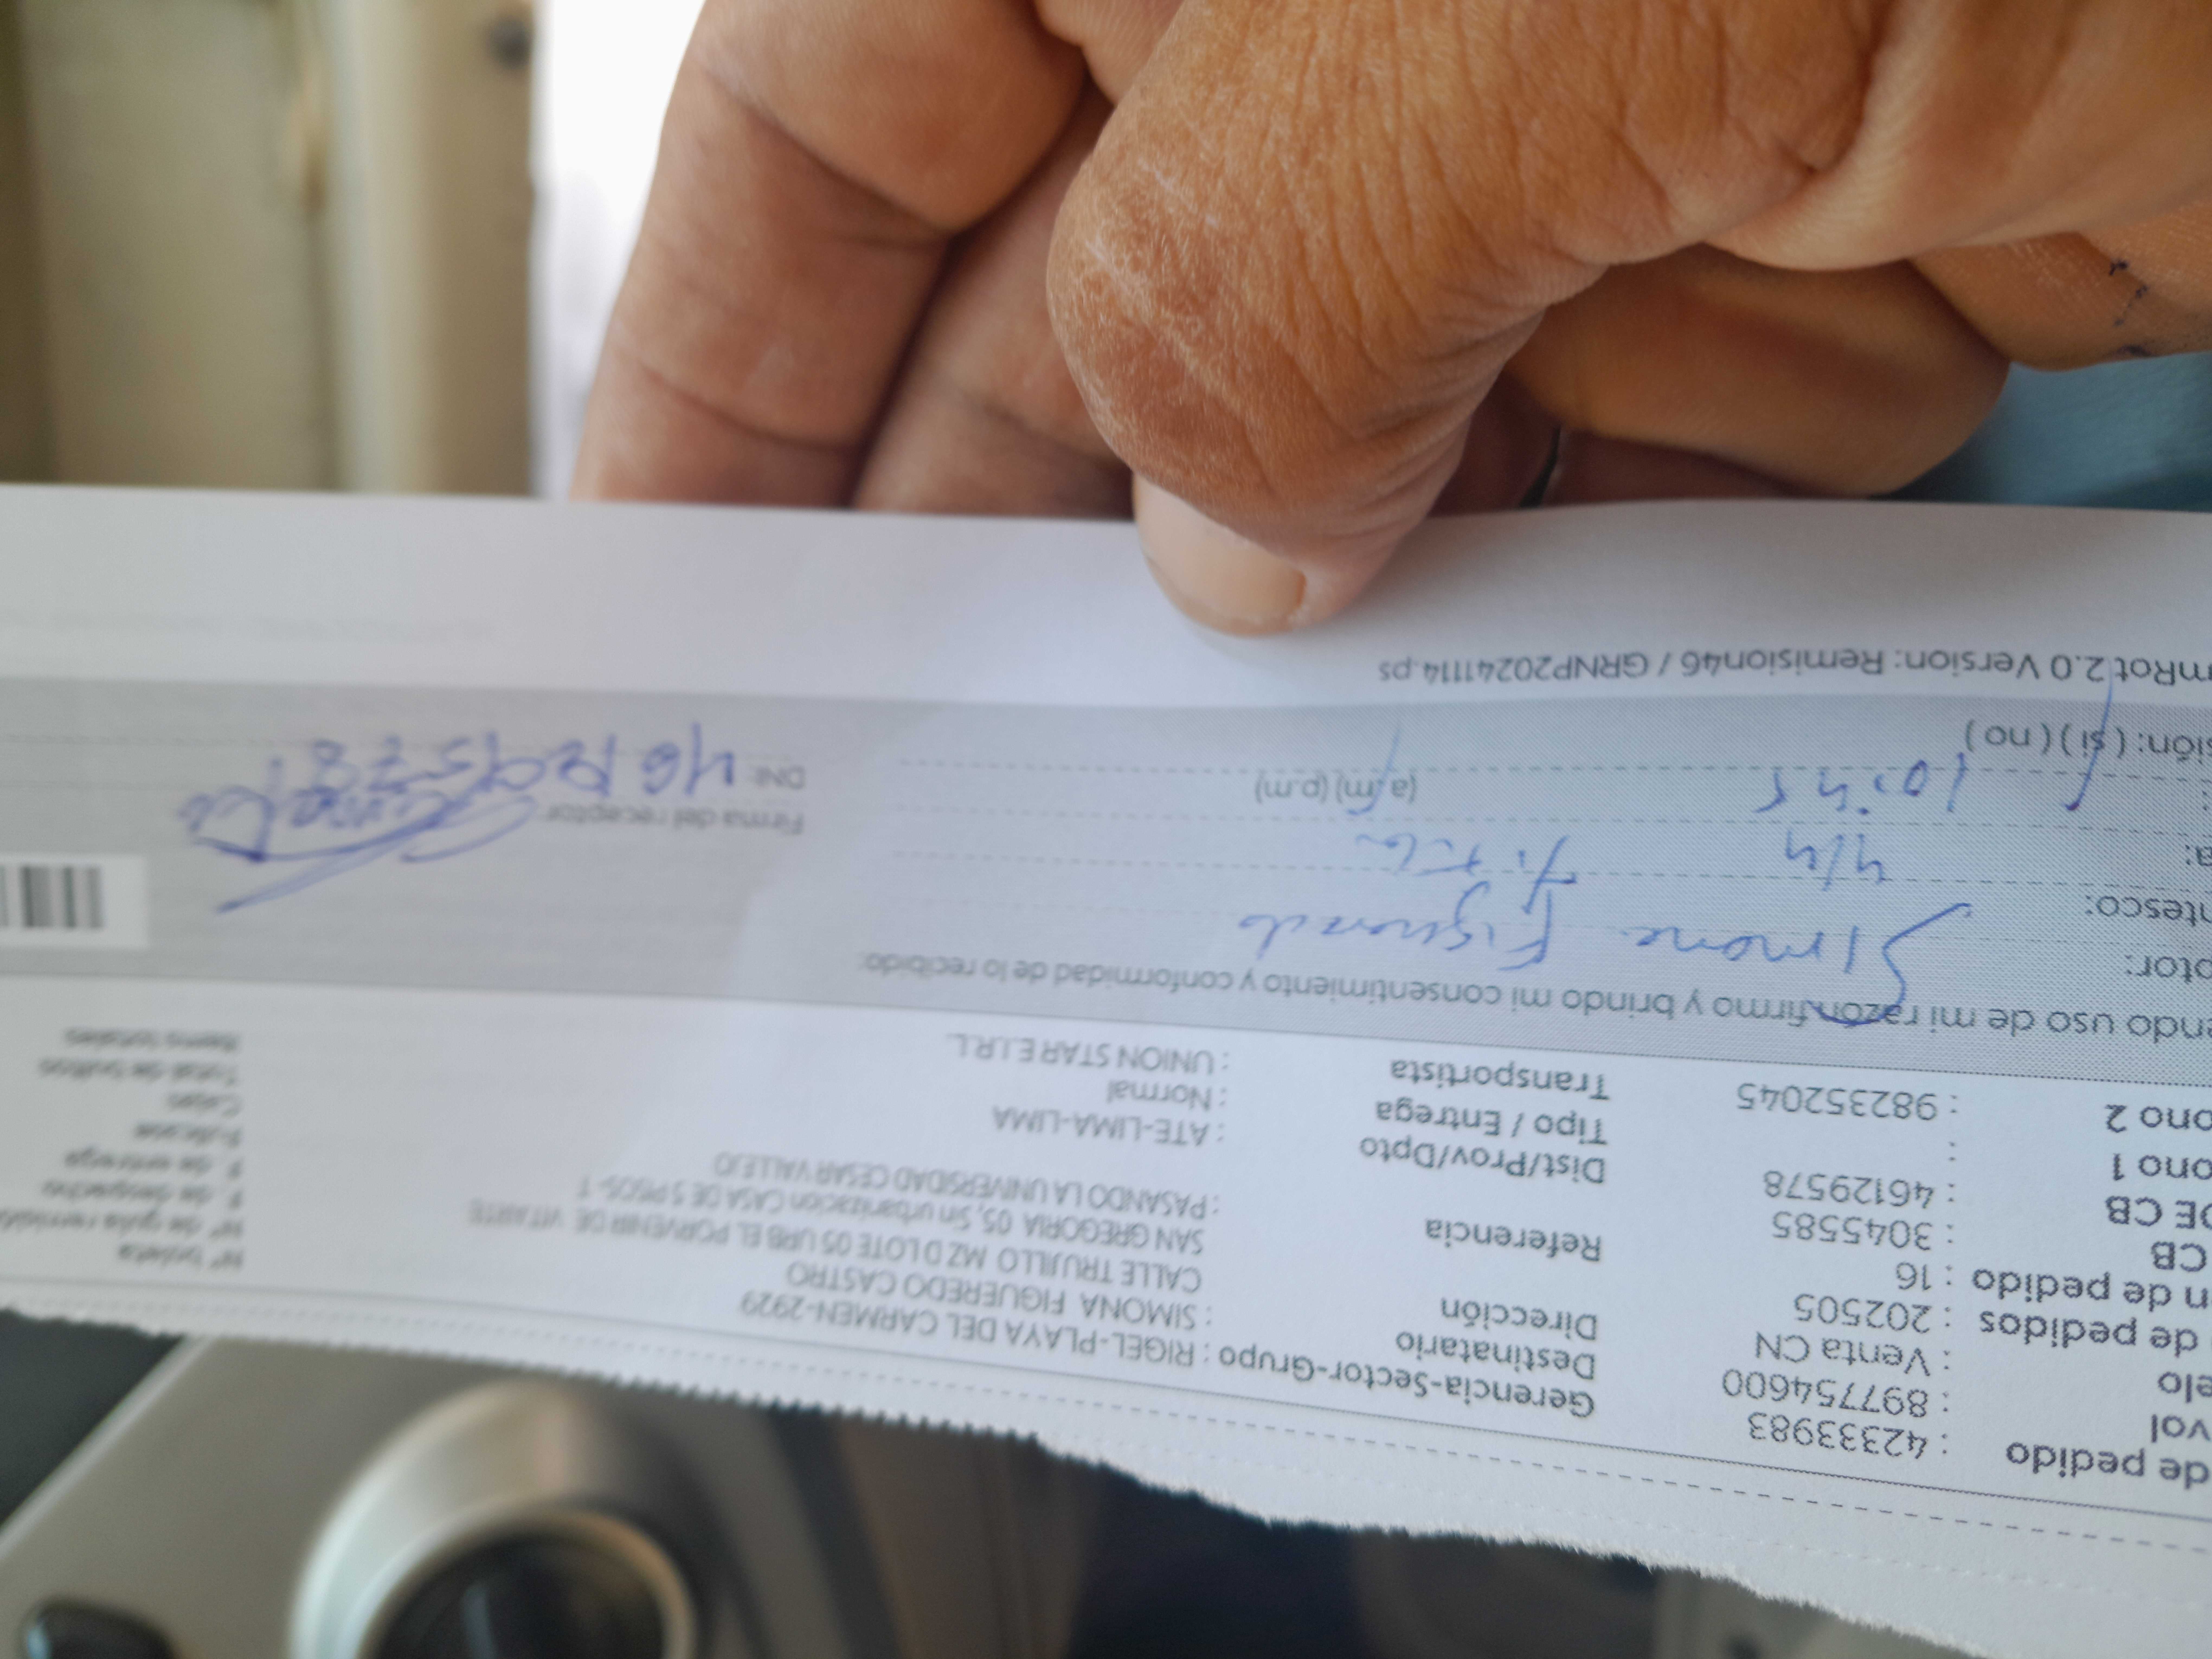 de pedido : 42333983
vol : 897754600
elo : Venta CN
de pedidos : 202505
n de pedido : 16
CB : 3045585
DE CB : 46129578
ono 1 :
ono 2 : 982352045
Gerencia-Sector-Grupo : RIGEL-PLAYA DEL CARMEN-2929
Destinatario : SIMONA FIGUEREDO CASTRO
Dirección CALLE TRUJILLO MZ D LOTE 05 URB EL PORVENIR DE VITARTE
SAN GREGORIA 05, Sin urbanizacion CASA DE 5 PISOS- 1
Referencia : PASANDO LA UNIVERSIDAD CESAR VALLEJO
Dist/Prov/Dpto : ATE-LIMA-LIMA
Tipo / Entrega : Normal
Transportista : UNION STAR E.I.R.L.
N° boleta
N° de guía remisión
F. de despacho
F. de entrega
Fullcase
Cajas
Total de bultos
Items totales
endo uso de mi razón firmo y brindo mi consentimiento y conformidad de lo recibido:
ptor: Simona Figueredo
ntesco: Titular
a: 4/4
: 10:45 (a.m) (p.m)
sión: ( si ) ( no )
Firma del receptor:
DNI: 46129578
mRot 2.0 Version: Remision46 / GRNP20241114.ps